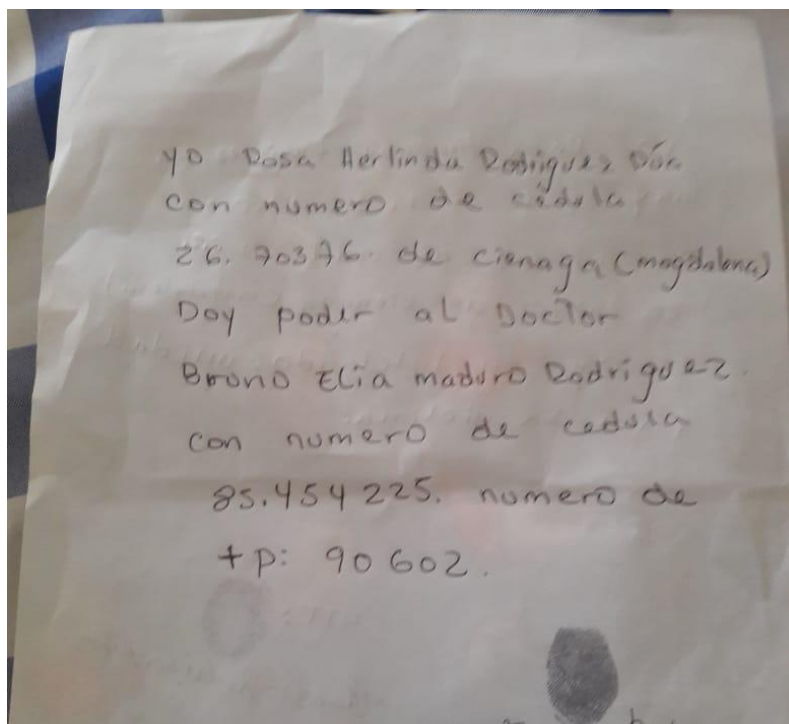 yo Rosa Herlinda Rodriguez
con numero de cedula
26. 70376. de cienaga (magdalena)
Doy poder al Doctor
Bruno Elia maduro Rodriguez.
con numero de cedula
85.454225. numero de
tp: 90602.